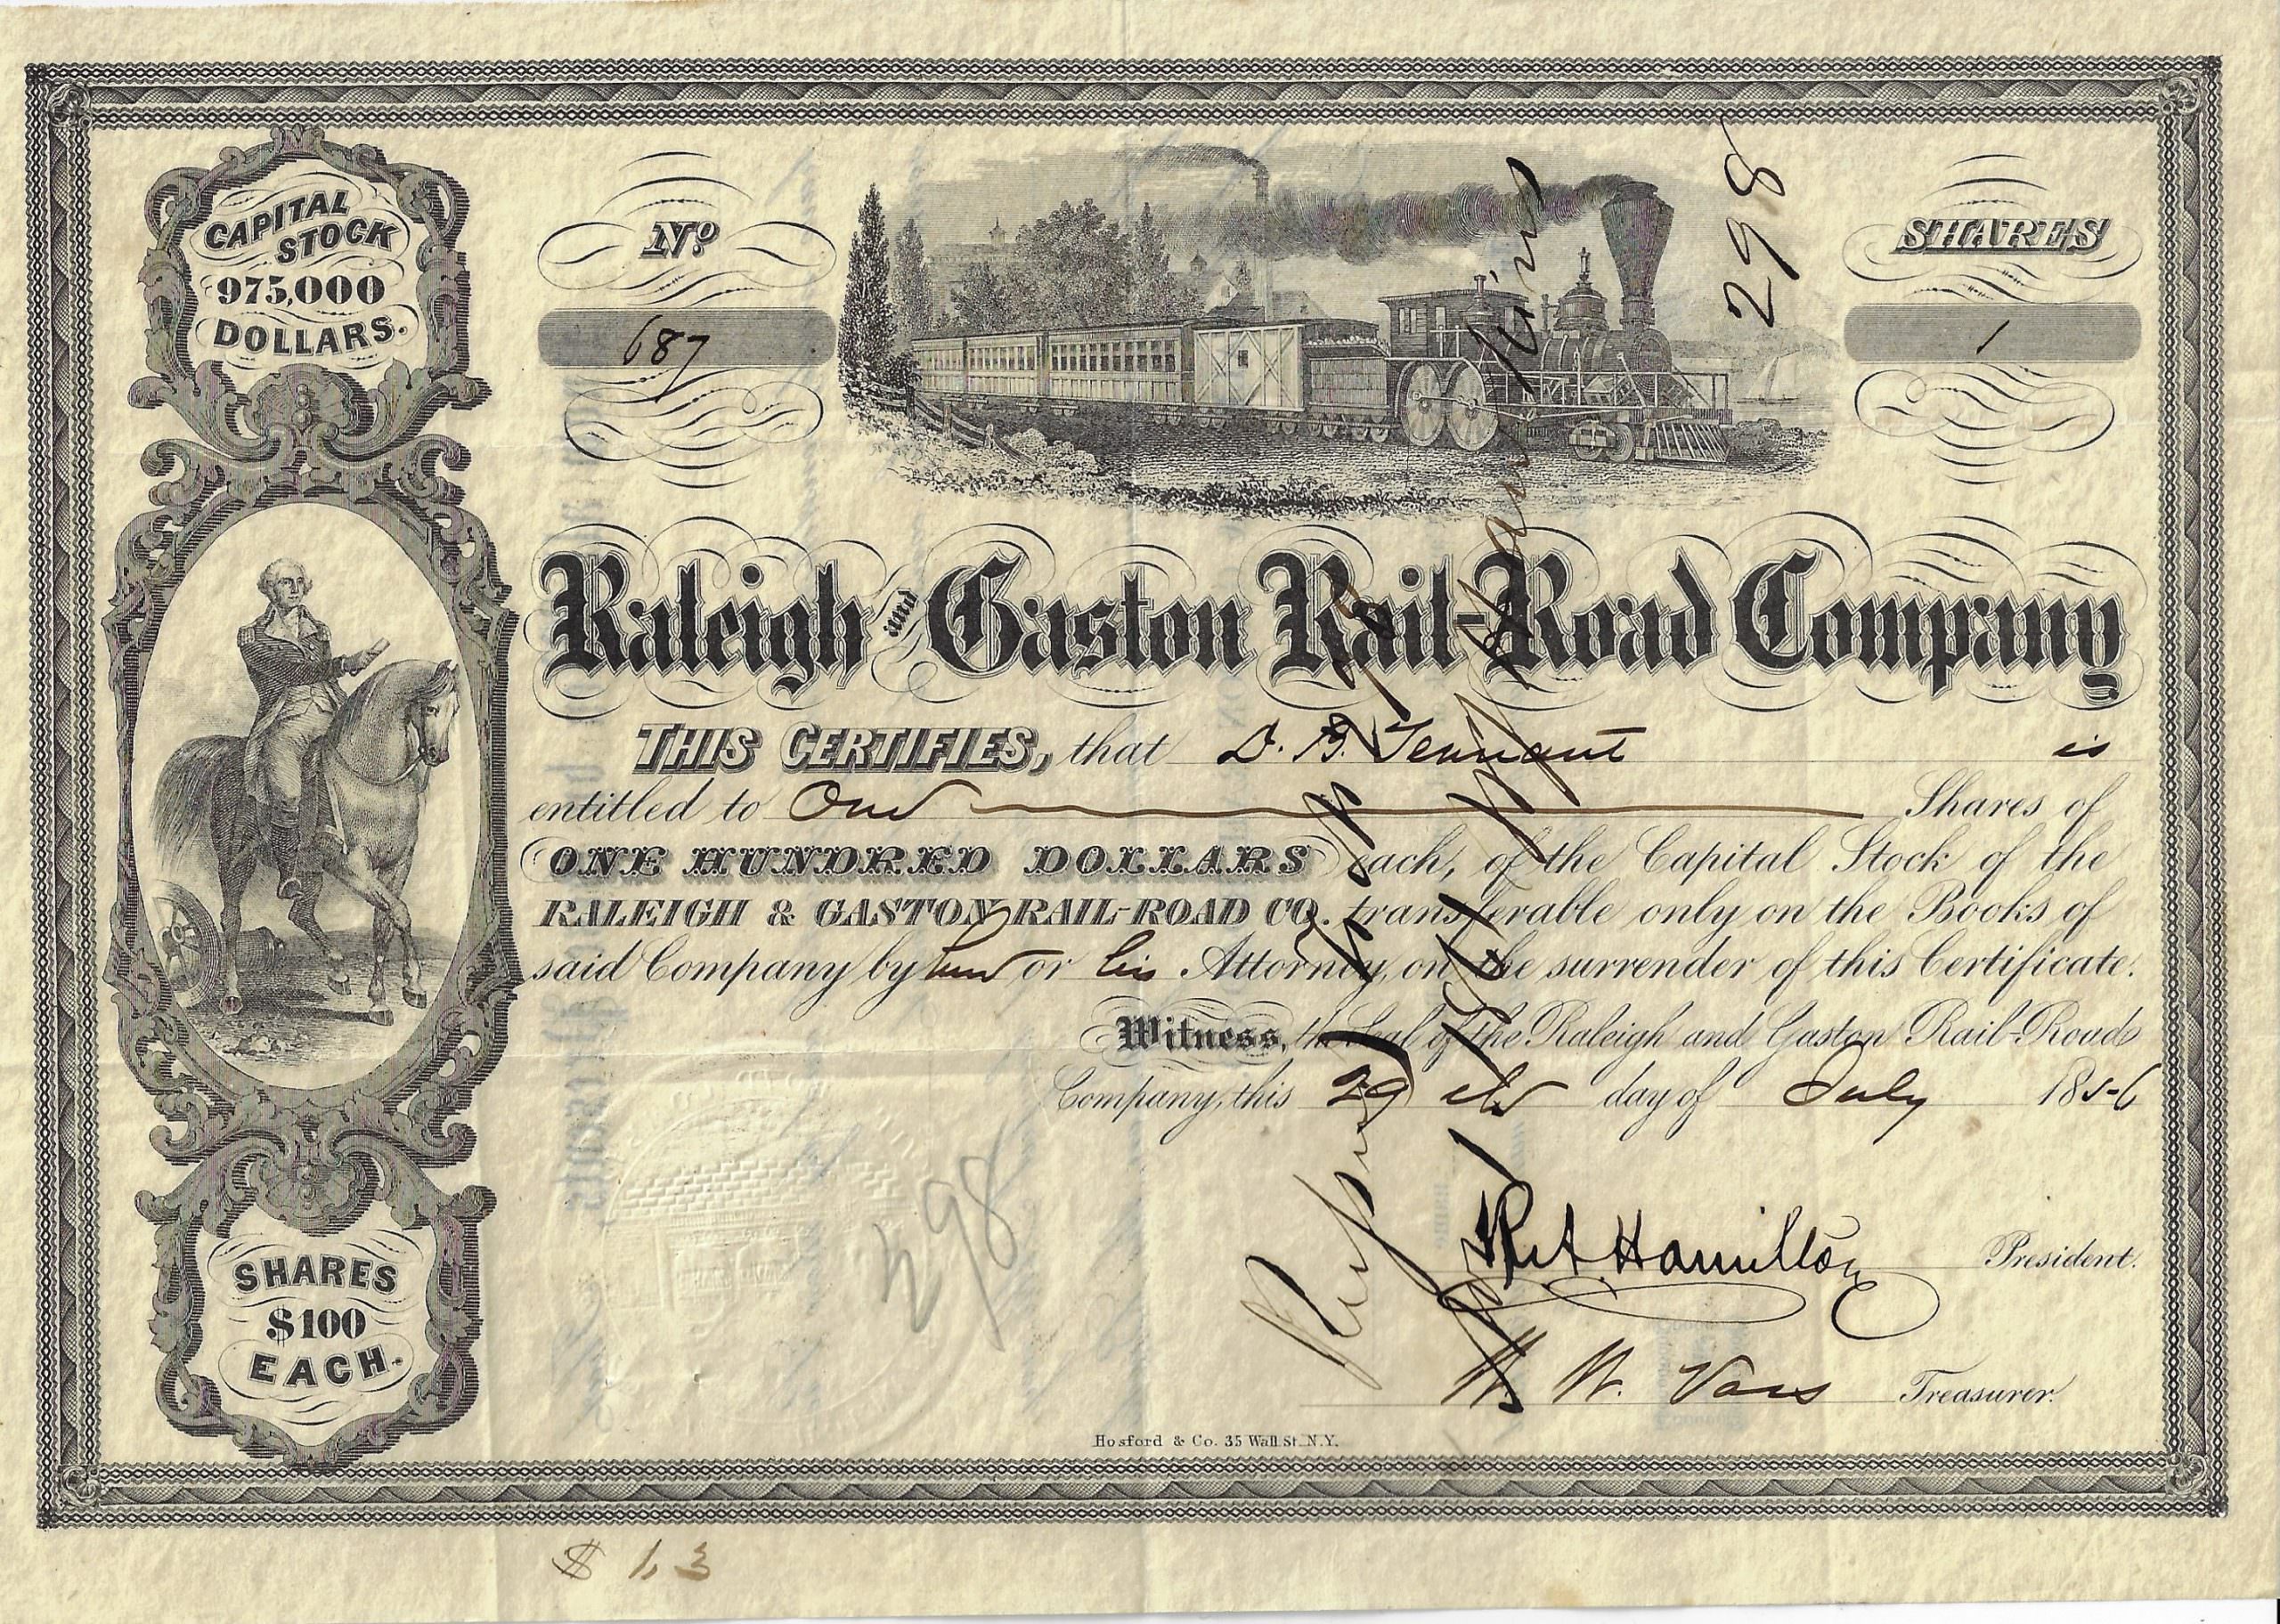 CAPITAL
STOCK
975,000
DOLLARS.
Nº
687
SHARES
1
298
Raleigh and Gaston Rail-Road Company
THIS CERTIFIES, that D. B. Tennant is
entitled to One Shares of
ONE HUNDRED DOLLARS each, of the Capital Stock of the
RALEIGH & GASTON RAIL-ROAD CO. transferable only on the Books of
said Company by him or his Attorney, on the surrender of this Certificate.
Witness, the Seal of the Raleigh and Gaston Rail-Road
Company, this 29th day of July 1856
298
Hamilton President.
W. W. Vass Treasurer.
SHARES
$100
EACH.
Hosford & Co. 35 Wall St. N.Y.
$ 1.3